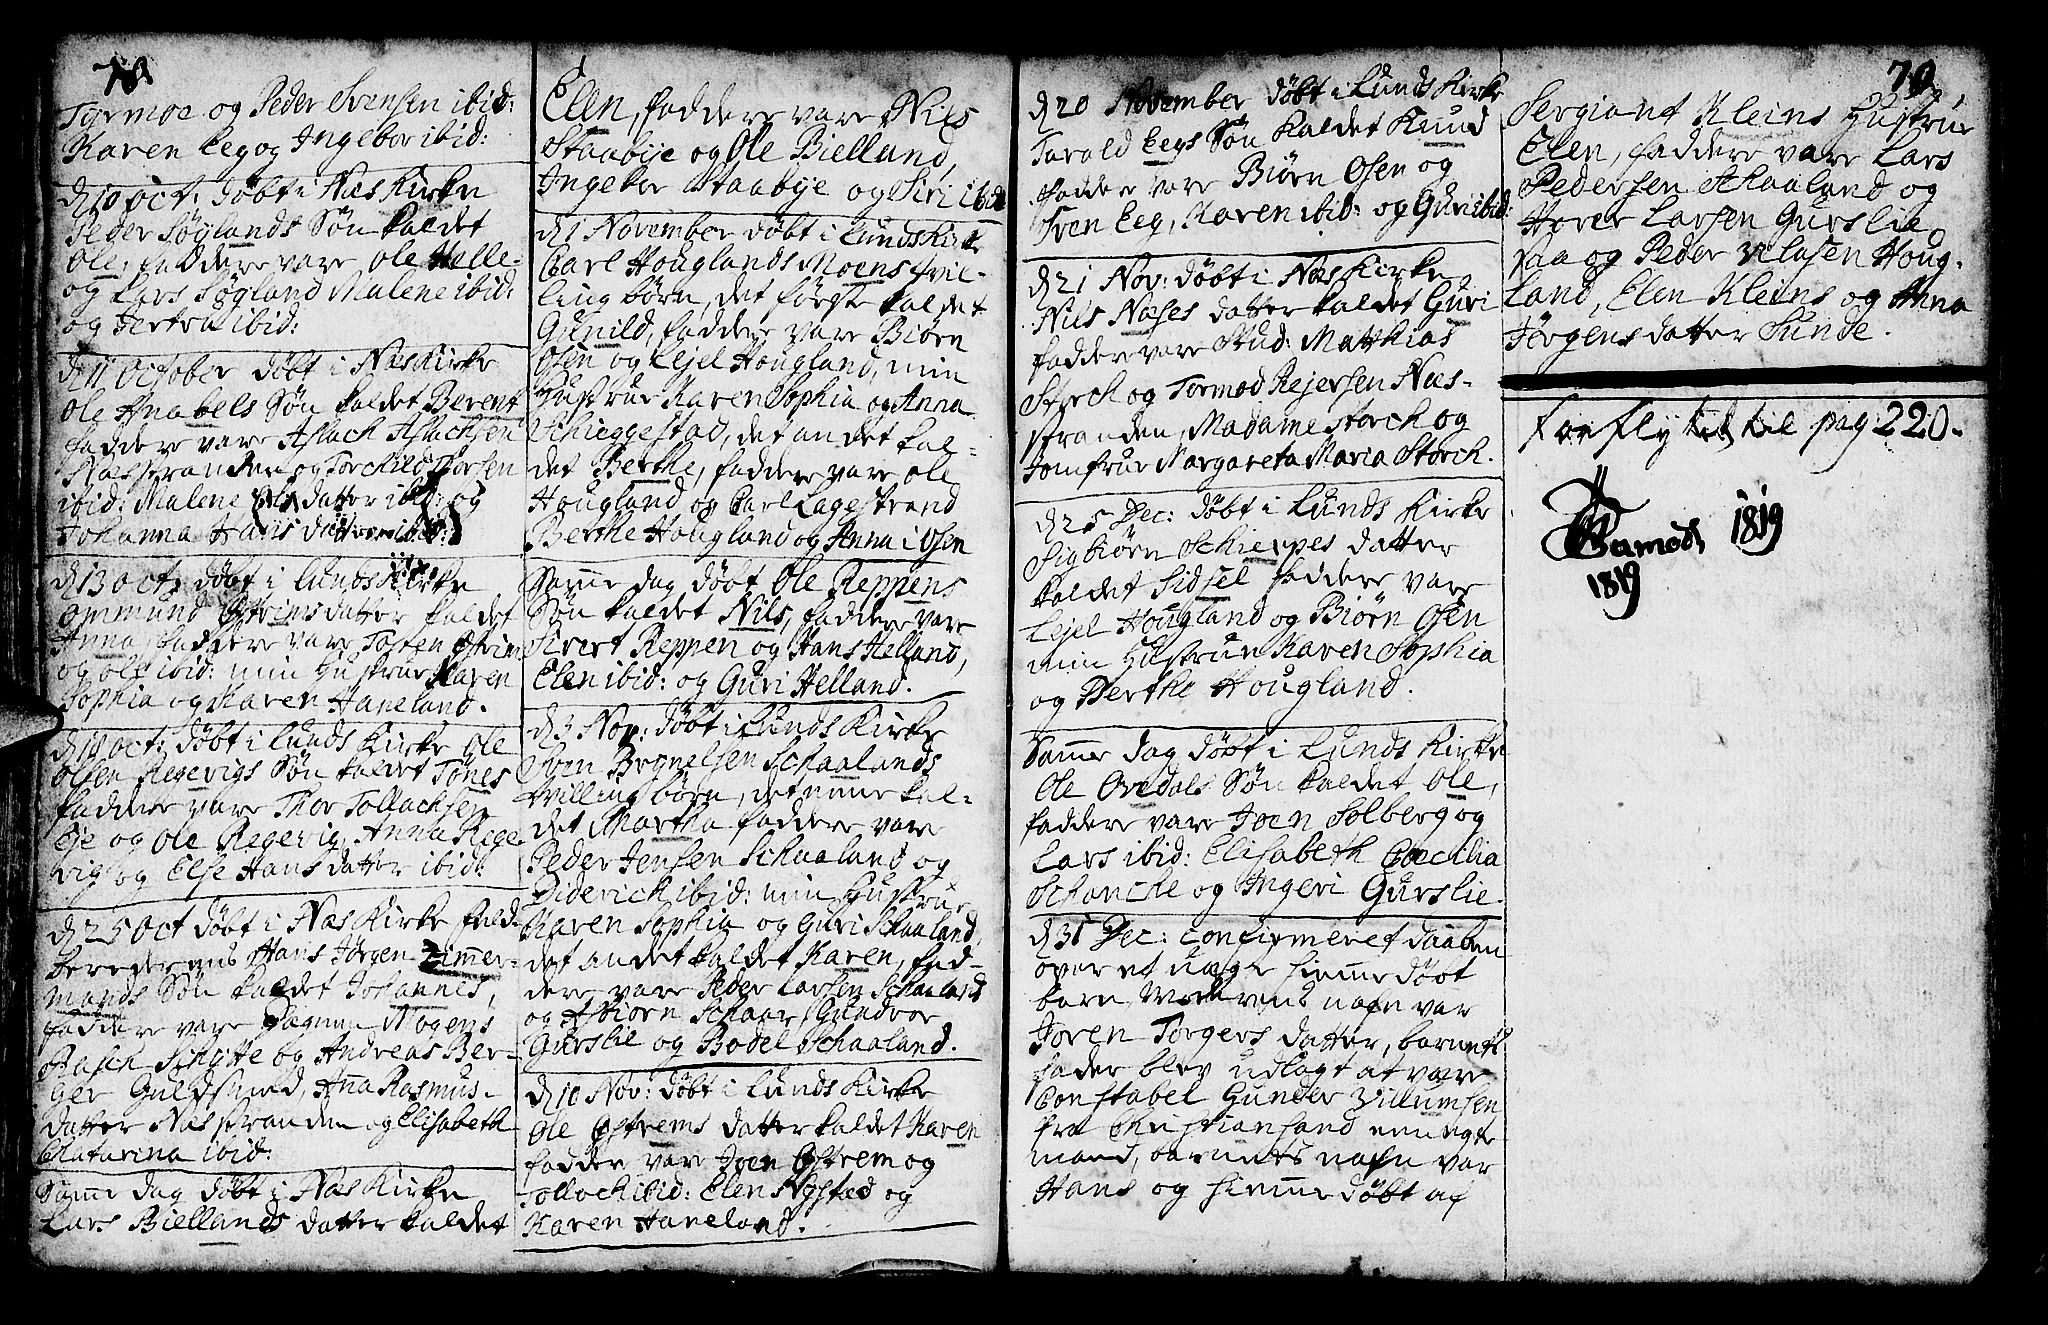 70
Tormoe og Peder Svensen ibid:
Karen Eeg og Ingebor ibid:
d 10 oct: døbt i Næs Kirke
Peder Søglands Søn kaldet
Ole, faddere vare Ole Helle-
og Lars Søgland Malene ibid:
og Jertru ibid:
d 11 October døbt i Næs Kirke
Ole Anabels Søn kaldet Berent
faddere vare Aslach Aslachsen
Næsstranden og Torchild Thorsen
ibid: Malene datter ibid: og
Johanna Hans datter ibid:
d 13 oct: døbt i Lunds Kirke
Ommund Østrems datter kaldet
Anna, faddere vare Tosten Østrim
og Ole ibid: min Hustrue Karen
Sophia og Karen Haneland.
d 19 oct: døbt i Lunds Kirke Ole
Olsen Regevigs Søn kaldet Tønes
faddere vare Thor Tollachsen
Eje og Ole Regevig, Anna Rege
vig og Else Hans datter ibid:
d 25 Oct døbt i Næs Kirke fuld-
berederens Hans Jørgen Zimmer-
mands Søn kaldet Johannes,
faddere vare Magnus Mogens
Rasch Schytte og Andreas Ber-
ger Guldsmed, Anna Rasmus-
datter Næsstranden og Elisabeth
Chatarina ibid:
Samme dag døbt i Næs Kirke
Lars Biellands datter kaldet
Elen, faddere vare Nils
Staabye og Ole Bielland,
Ingebor Staabye og Siri ibid
d 1 November døbt i Lunds Kirke
Carl Houglands Moens tvil-
ling børn, det første kaldet
Gunild, faddere vare Biørn
Osen og Lejel Hougland, min
Hustrue Karen Sophia og Anna
Schieggestad, det andet kal-
det Berthe, faddere vare Ole
Hougland og Carl Lagestrand
Berthe Hougland og Anna i Osen
Samme dag døbt Ole Reppens
Søn kaldet Nils, faddere vare
Sivert Reppen og Hans Helland,
Elen ibid: og Guri Helland.
d 3 Nov: døbt i Lunds Kirke
Sven Bronelsen Schaalands
tvilling børn, det eene kal-
det Martha, faddere vare
Peder Jensen Schaaland og
Diderick ibid: min Hustrue
Karen Sophia og Guri Schaaland,
det andet kaldet Karen, fad-
dere vare Peder Larsen Schaaland
og Asbiørn Schaar, Gundvor
Gurslie og Bodel Schaaland.
d 10 Nov: døbt i Lunds Kirke
Ole Østrems datter kaldet Karen
faddere vare Joen Østrem og
Tollach ibid: Elen Nysted og
Karen Haneland.
d 20 November døbt i Lunds Kirke
Tarald Eegs Søn kaldet Knud
faddere vare Biørn Osen og
Sven Eeg, Karen ibid: og Guri ibid:
d 21 Nov: døbt i Næs Kirke
Nils Næses datter kaldet Guri
faddere vare Stud: Matthias
Storch og Tormod Rejersen Næs-
stranden, Madame Storch og
Jomfrue Margareta Maria Storch.
d 25 Dec: døbt i Lunds Kirke
Sigbiørn Schieppes datter
kaldet Sidsel faddere vare
Lejel Hougland og Biørn Osen
min Hustrue Karen Sophia
og Berthe Hougland.
Samme dag døbt i Lunds Kirke
Ole Ovedals Søn kaldet Ole,
faddere vare Joen Solberg og
Lars ibid: Elisabeth Cæcilia
Schancke og Ingeri Gurslie.
d 31 Dec: confirmeret daaben
over et uægte hiemme døbt
barn, Moderens nafn var
Joren Torgers datter, barnets
fader blev udlagt at være
Constabel Gunder Villumsen
fra Christiansand een ugte
mand, barnets nafn var
Hans og hiemme døbt af
70
Sergiant Kleins Hustrue
Elen, faddere vare Lars
Pedersen Schaaland og
Hover Larsen Gurslie
Aaa og Peder Olasen Houg-
land, Elen Kleins og Anna
Jørgensdatter Sunde.
forflyttet til pag: 220.
1819
1819